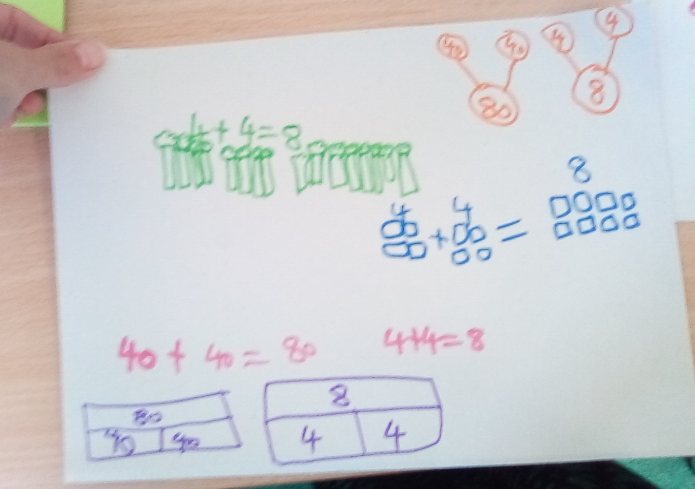 40 40 4 4
80 8
4 + 4 = 8
8
4 4
+ =
40 + 40 = 80 4+4=8
80 8
40 40 4 4